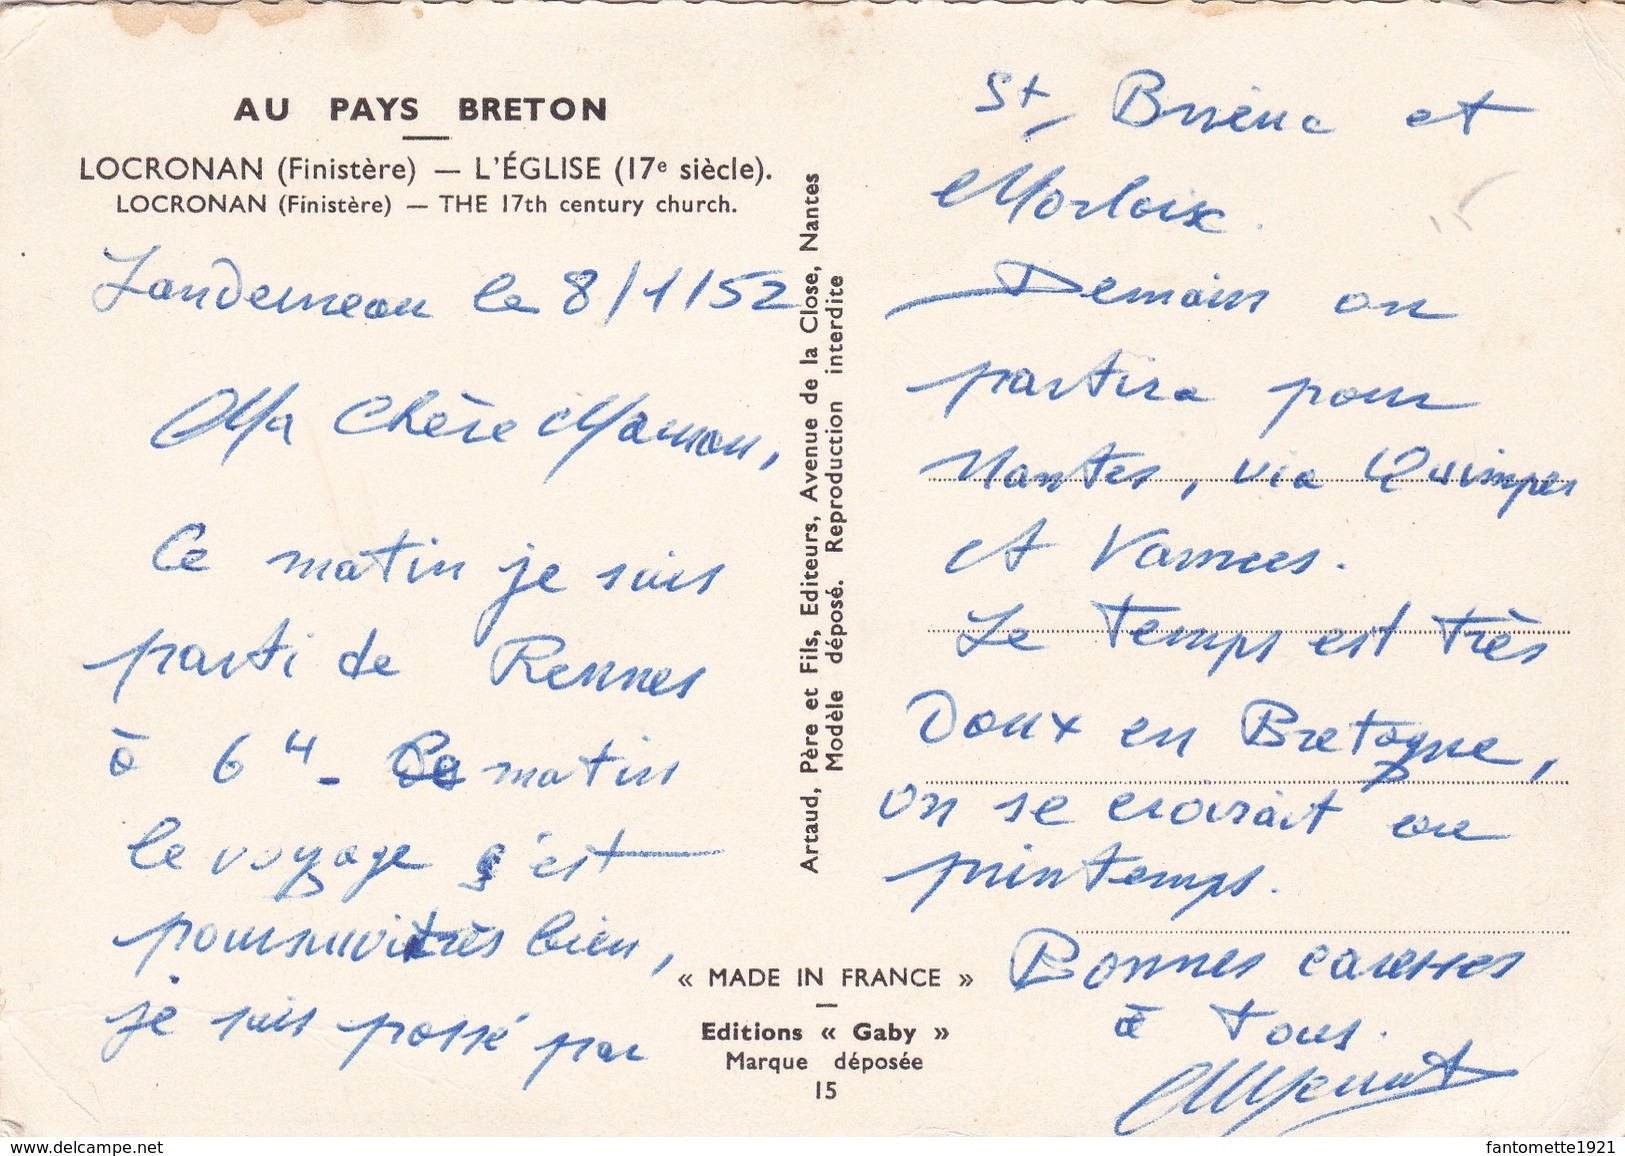 AU PAYS BRETON
LOCRONAN (Finistère) — L'ÉGLISE (17e siècle).
LOCRONAN (Finistère) — THE 17th century church.
Landerneau le 8/1/52
Ma Chère Maman,
Ce matin je suis
parti de Rennes
à 6H - matin
le voyage s'est
poursuivi très bien,
je suis passé par
Artaud, Père et Fils, Editeurs, Avenue de la Close, Nantes
Modèle déposé. Reproduction interdite
« MADE IN FRANCE »
Editions « Gaby »
Marque déposée
15
St Brieuc et
Morlaix.
Demain on
partira pour
Nantes, via Quimper
et Vannes.
Le Temps est très
Doux en Bretagne,
on se croirait au
printemps.
Bonnes caresses
à Tous.
delcampe.net
fantomette1921